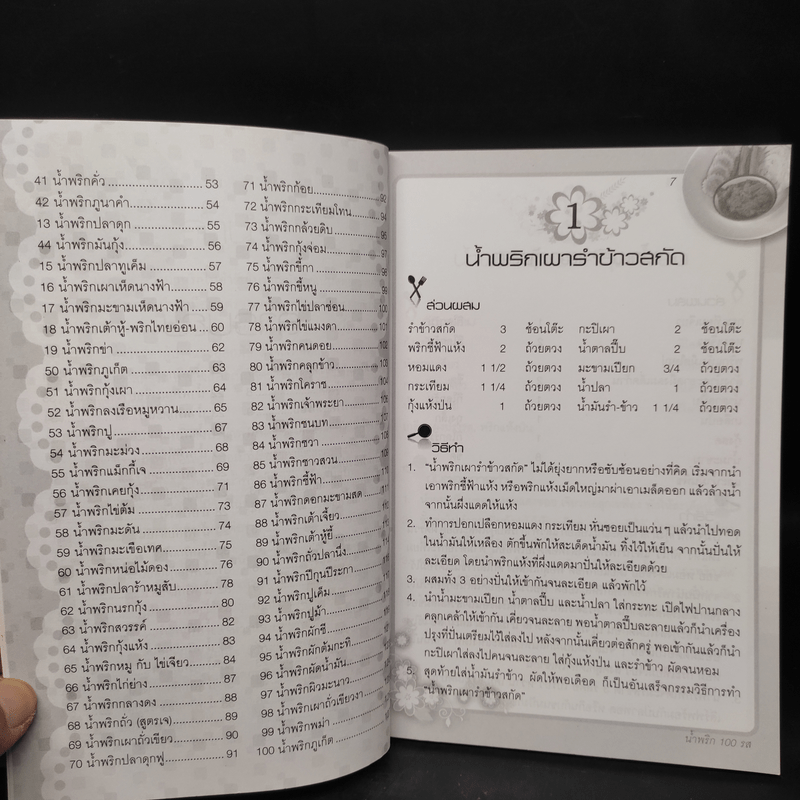 41 น้ำพริกคั่ว............................ 53
42 น้ำพริกภูนาคำ...................... 54
13 น้ำพริกปลาดุก ..................... 55
44 น้ำพริกมันกุ้ง........................ 56
15 น้ำพริกปลาทูเค็ม .................. 57
16 น้ำพริกเผาเห็ดนางฟ้า............ 58
17 น้ำพริกมะขามเห็ดนางฟ้า ..... 59
18 น้ำพริกเต้าหู้-พริกไทยอ่อน ... 60
19 น้ำพริกข่า ........................... 62
50 น้ำพริกภูเก็ต ....................... 63
51 น้ำพริกกุ้งเผา ...................... 64
52 น้ำพริกลงเรือหมูหวาน .......... 65
53 น้ำพริกปู ............................ 67
54 น้ำพริกมะม่วง ..................... 68
55 น้ำพริกแม็กกี้เจ ................... 69
56 น้ำพริกเคยกุ้ง ..................... 71
57 น้ำพริกไข่ต้ม ...................... 73
58 น้ำพริกมะดัน ...................... 74
59 น้ำพริกมะเขือเทศ................ 75
60 น้ำพริกหน่อไม้ดอง .............. 76
61 น้ำพริกปลาร้าหมูสับ ............ 78
62 น้ำพริกนรกกุ้ง .................... 80
63 น้ำพริกสวรรค์ .................... 82
64 น้ำพริกกุ้งแห้ง .................... 83
65 น้ำพริกหมู กับ ไข่เจียว ........ 84
66 น้ำพริกไก่ย่าง ..................... 87
67 น้ำพริกกลางดง .................. 88
68 น้ำพริกถั่ว (สูตรเจ) ............. 89
69 น้ำพริกเผาถั่วเขียว .............. 90
70 น้ำพริกปลาดุกฟู ................. 91
71 น้ำพริกก้อย...................... 92
72 น้ำพริกกระเทียมโทน .......... 94
73 น้ำพริกกล้วยดิบ ................ 95
74 น้ำพริกกุ้งจ่อม .................. 97
75 น้ำพริกขี้กา ...................... 98
76 น้ำพริกขี้หนู ..................... 99
77 น้ำพริกไข่ปลาช่อน............ 100
78 น้ำพริกไข่แมงดา .............. 101
79 น้ำพริกคนดอย................. 102
80 น้ำพริกคลุกข้าว ............... 103
81 น้ำพริกโคราช .................. 104
82 น้ำพริกเจ้าพระยา..............
83 น้ำพริกชนบท ................... 107
84 น้ำพริกชวา ......................
85 น้ำพริกซาวสวน.................
86 น้ำพริกชีฟ้า......................
87 น้ำพริกดอกมะขามสด........
88 น้ำพริกเต้าเจี้ยว ................
89 น้ำพริกเต้าหู้ยี้ ...................
90 น้ำพริกถั่วปลานึ่ง...............
91 น้ำพริกปีกุนปีระกา.............
92 น้ำพริกปูเค็ม ....................
93 น้ำพริกปูม้า......................
94 น้ำพริกผักชี .....................
95 น้ำพริกผักต้มกะทิ..............
96 น้ำพริกผัดน้ำมัน................
97 น้ำพริกผิวมะนาว...............
98 น้ำพริกเผาถั่วเขียวงา..........
99 น้ำพริกพม่า......................
100 น้ำพริกภูเก็ต ..................
7
1
น้ำพริกเผารำข้าวสกัด
ส่วนผสม
รำข้าวสกัด 3 ช้อนโต๊ะ กะปิเผา 2 ช้อนโต๊ะ
พริกชี้ฟ้าแห้ง 2 ถ้วยตวง น้ำตาลปี๊บ 2 ช้อนโต๊ะ
หอมแดง 1 1/2 ถ้วยตวง มะขามเปียก 3/4 ถ้วยตวง
กระเทียม 1 1/4 ถ้วยตวง น้ำปลา 1 ถ้วยตวง
กุ้งแห้งป่น 1 ถ้วยตวง น้ำมันรำ-ข้าว 1 1/4 ถ้วยตวง
วิธีทำ
1. "น้ำพริกเผารำข้าวสกัด" ไม่ได้ยุ่งยากหรือซับซ้อนอย่างที่คิด เริ่มจากนำ
เอาพริกชี้ฟ้าแห้ง หรือพริกแห้งเม็ดใหญ่มาผ่าเอาเมล็ดออก แล้วล้างน้ำ
จากนั้นผึ่งแดดให้แห้ง
2. ทำการปอกเปลือกหอมแดง กระเทียม หั่นซอยเป็นแว่นๆ แล้วนำไปทอด
ในน้ำมันให้เหลือง ตักขึ้นพักให้สะเด็ดน้ำมัน ทิ้งไว้ให้เย็น จากนั้นปั่นให้
ละเอียด โดยนำพริกแห้งที่ผึ่งแดดมาปั่นให้ละเอียดด้วย
3. ผสมทั้ง 3 อย่างปั่นให้เข้ากันจนละเอียด แล้วพักไว้
4. นำน้ำมะขามเปียก น้ำตาลปี๊บ และน้ำปลา ใส่กระทะ เปิดไฟปานกลาง
คลุกเคล้าให้เข้ากัน เคี่ยวจนละลาย พอน้ำตาลปี๊บละลายแล้วก็นำเครื่อง
ปรุงที่ปั่นเตรียมไว้ใส่ลงไป หลังจากนั้นเคี่ยวต่อสักครู่ พอเข้ากันแล้วก็นำ
กะปิเผาใส่ลงไปคนจนละลาย ใส่กุ้งแห้งป่น และรำข้าว ผัดจนหอม
5. สุดท้ายใส่น้ำมันรำข้าว ผัดให้พอเดือด ก็เป็นอันเสร็จกรรมวิธีการทำ
"น้ำพริกเผารำข้าวสกัด"
น้ำพริก 100 รส